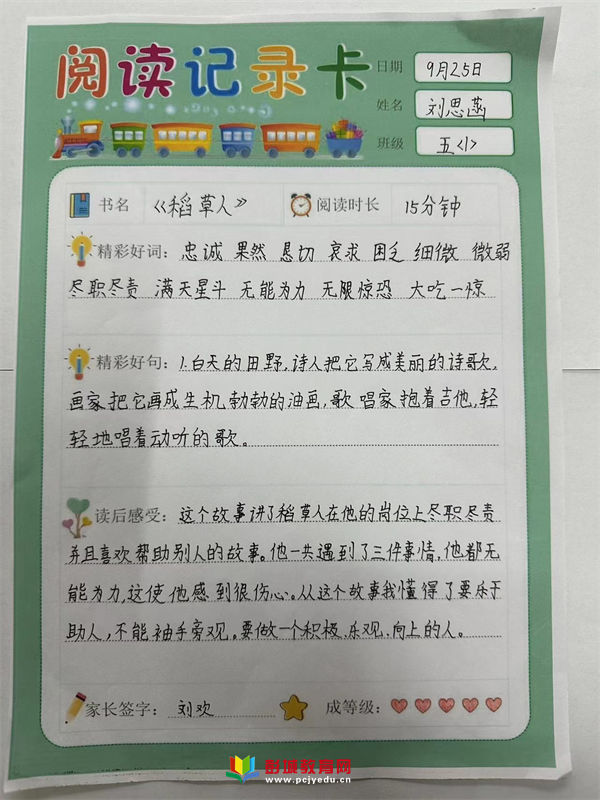 阅读记录卡
日期 9月25日
姓名 刘思菡
班级 五<1>
书名 《稻草人》 阅读时长 15分钟
精彩好词：忠诚 果然 恳切 哀求 困乏 细微 微弱
尽职尽责 满天星斗 无能为力 无限惊恐 大吃一惊
精彩好句：1.白天的田野,诗人把它写成美丽的诗歌,
画家把它画成生机勃勃的油画,歌唱家抱着吉他,轻
轻地唱着动听的歌。
读后感受：这个故事讲了稻草人在他的岗位上尽职尽责
并且喜欢帮助别人的故事。他一共遇到了三件事情,他都无
能为力,这使他感到很伤心。从这个故事我懂得了要乐于
助人,不能袖手旁观。要做一个积极、乐观、向上的人。
家长签字：刘欢 成等级：
彭城教育网
www.pcjyedu.cn